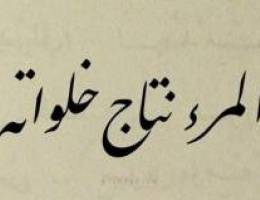 المرء نتاج خلواته